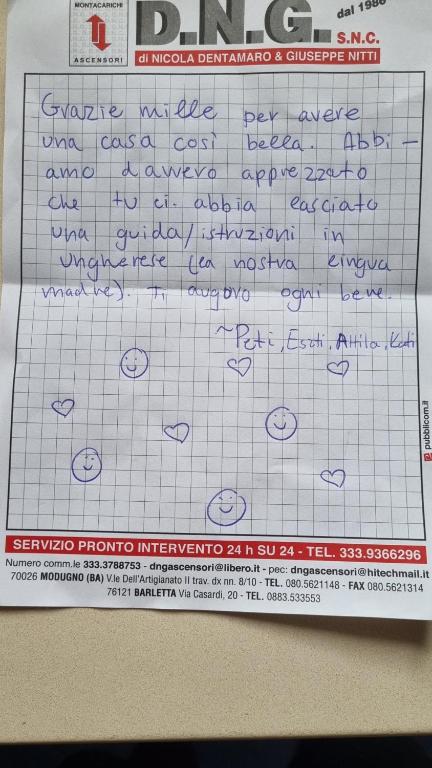 MONTACARICHI
ASCENSORI
D.N.G. S.N.C.
dal 1986
di NICOLA DENTAMARO & GIUSEPPE NITTI
Grazie mille per avere
una casa così bella. Abbi-
amo davvero apprezzato
che tu ci abbia lasciato
una guida/istruzioni in
Ungherese (la nostra lingua
madre). Ti auguro ogni bene.
~Peti, Eszti, Attila, Kati
pubblicom.it
SERVIZIO PRONTO INTERVENTO 24 h SU 24 - TEL. 333.9366296
Numero comm.le 333.3788753 - dngascensori@libero.it - pec: dngascensori@hitechmail.it
70026 MODUGNO (BA) V.le Dell'Artigianato II trav. dx nn. 8/10 - TEL. 080.5621148 - FAX 080.5621314
76121 BARLETTA Via Casardi, 20 - TEL. 0883.533553